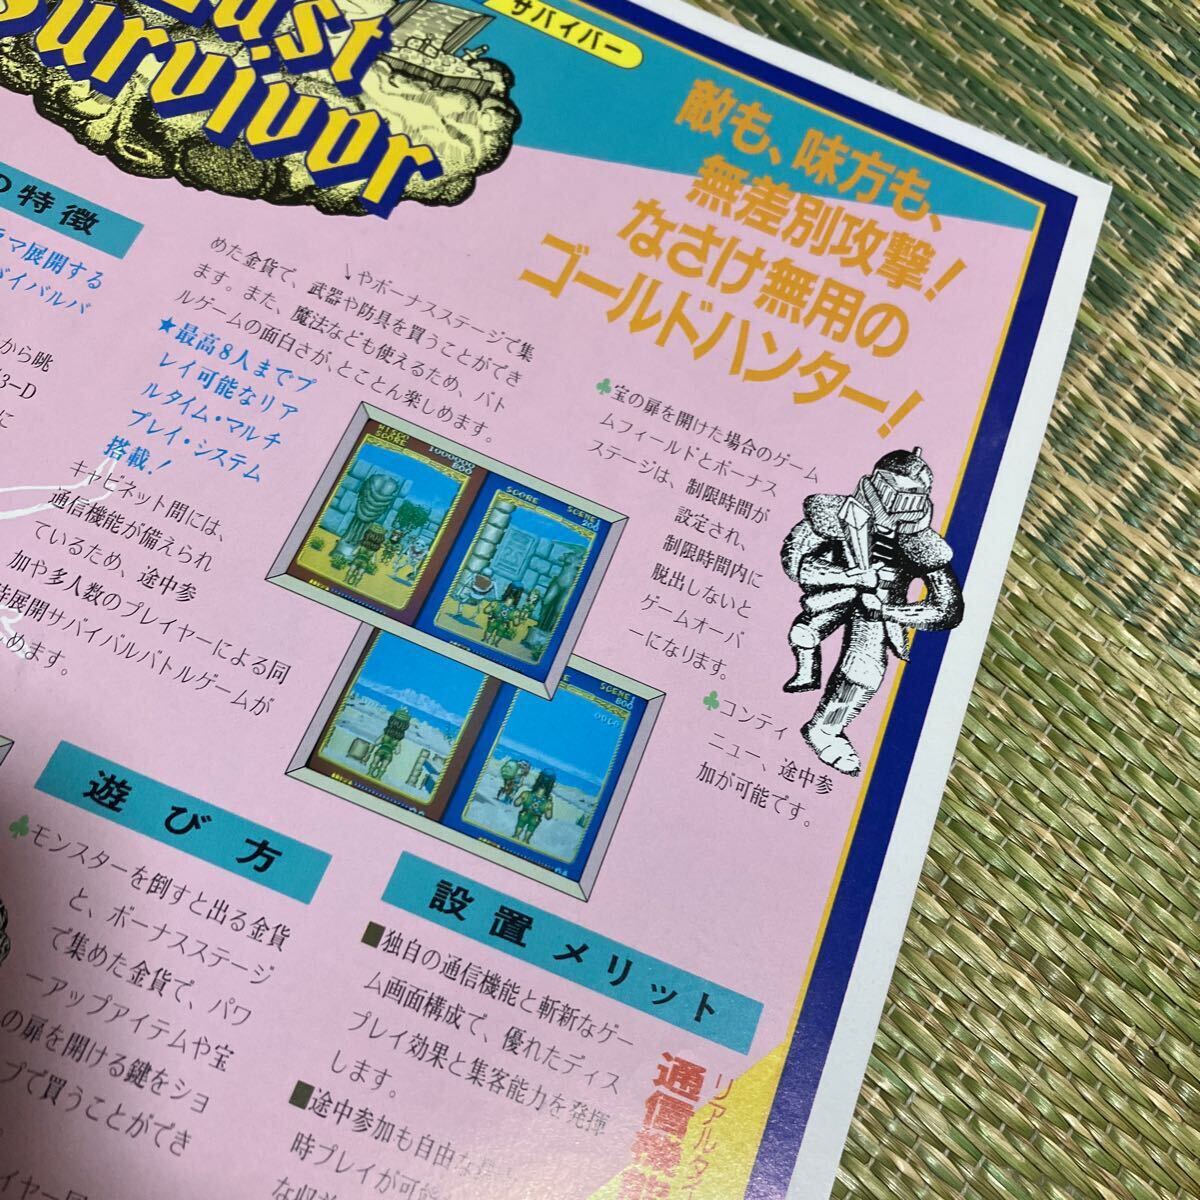 Last
Survivor
サバイバー
敵も、味方も、
無差別攻撃！
なさけ無用の
ゴールドハンター！
の特徴
ラマ展開する
バイバルバ
から眺
3-D
に
↘やボーナスステージで集
めた金貨で、武器や防具を買うことができ
ます。また、魔法なども使えるため、バト
ルゲームの面白さが、とことん楽しめます。
★最高8人までプ
レイ可能なリア
ルタイム・マルチ
プレイ・システム
搭載！
キャビネット間には、
通信機能が備えられ
ているため、途中参
加や多人数のプレイヤーによる同
時展開サバイバルバトルゲームが
しめます。
♣宝の扉を開けた場合のゲー
ムフィールドとボーナス
ステージは、制限時間が
設定され、
制限時間内に
脱出しないと
ゲームオーバ
ーになります。
♣コンティ
ニュー、途中参
加が可能です。
HISCO
SCORE
1000000
800
SCORE
SCENE1
200
SCENE1
800
遊び方
♣モンスターを倒すと出る金貨
と、ボーナスステージ
で集めた金貨で、パワ
ーアップアイテムや宝
の扉を開ける鍵をショ
ップで買うことができ
ます。
設置メリット
■独自の通信機能と斬新なゲー
ム画面構成で、優れたディス
プレイ効果と集客能力を発揮
します。
■途中参加も自由な
時プレイが可能
な収
リアルタ
通信機能